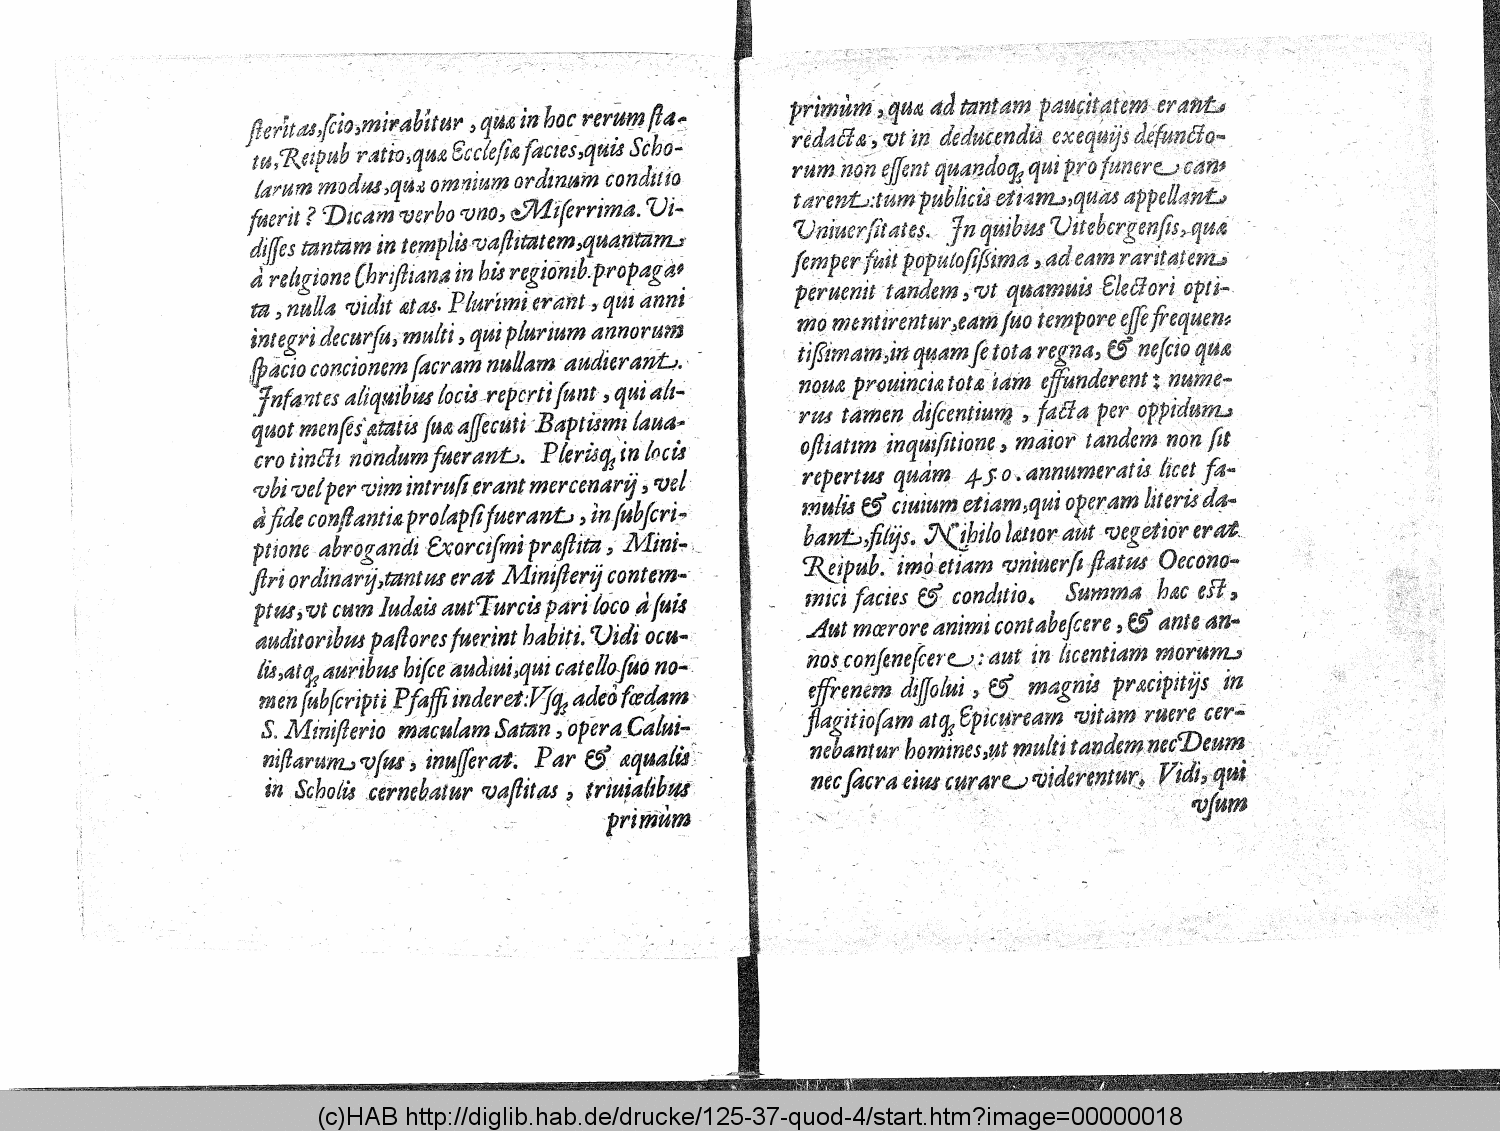 ſteritas, ſcio, mirabitur, quæ in hoc rerum ſta-
tu, Reipub ratio, quæ Eccleſiæ facies, quis Scho-
larum modus, quæ omnium ordinum conditio
fuerit? Dicam verbo vno, Miſerrima. Vi-
diſſes tantam in templis vaſtitatem, quantam
à religione Chriſtiana in his regionib. propaga-
ta, nulla vidit ætas. Plurimi erant, qui anni
integri decurſu, multi, qui plurium annorum
ſpacio concionem ſacram nullam audierant.
Infantes aliquibus locis reperti ſunt, qui ali-
quot menſes ætatis ſuæ aſſecuti Baptismi laua-
cro tincti nondum fuerant. Plerisq; in locis
vbi vel per vim intruſi erant mercenarij, vel
à fide conſtantiæ prolapſi fuerant, in ſubſcri-
ptione abrogandi Exorciſmi præſtita, Mini-
ſtri ordinarij, tantus erat Miniſterij contem-
ptus, vt cum Iudæis aut Turcis pari loco à ſuis
auditoribus paſtores fuerint habiti. Vidi ocu-
lis, atq; auribus hiſce audiui, qui catello ſuo no-
men ſubſcripti Pfaffi inderet: Vſq; adeò fœdam
S. Miniſterio maculam Satan, opera Calui-
niſtarum vſus, inuſſerat. Par & æqualis
in Scholis cernebatur vaſtitas, triuialibus
primùm
primùm, quæ ad tantam paucitatem erant
redactæ, vt in deducendis exequijs defuncto-
rum non eſſent quandoq; qui pro funere can-
tarent: tum publicis etiam, quas appellant
Vniuerſitates. In quibus Vitebergenſis, quæ
ſemper fuit populoſißima, ad eam raritatem
peruenit tandem, vt quamuis Electori opti-
mo mentirentur, eam ſuo tempore eſſe frequen-
tißimam, in quam ſe tota regna, & neſcio quæ
nouæ prouinciæ totæ iam effunderent: nume-
rus tamen diſcentium, facta per oppidum
oſtiatim inquiſitione, maior tandem non ſit
repertus quàm 450. annumeratis licet fa-
mulis & ciuium etiam, qui operam literis da-
bant, filijs. Nihilo lætior aut vegetior erat
Reipub. imò etiam vniuerſi ſtatus Oecono-
mici facies & conditio. Summa hæc eſt,
Aut mœrore animi contabeſcere, & ante an-
nos conſeneſcere: aut in licentiam morum
effrenem diſſolui, & magnis præcipitijs in
flagitioſam atq; Epicuream vitam ruere cer-
nebantur homines, ut multi tandem nec Deum
nec ſacra eius curare viderentur. Vidi, qui
vſum
(c)HAB http://diglib.hab.de/drucke/125-37-quod-4/start.htm?image=00000018